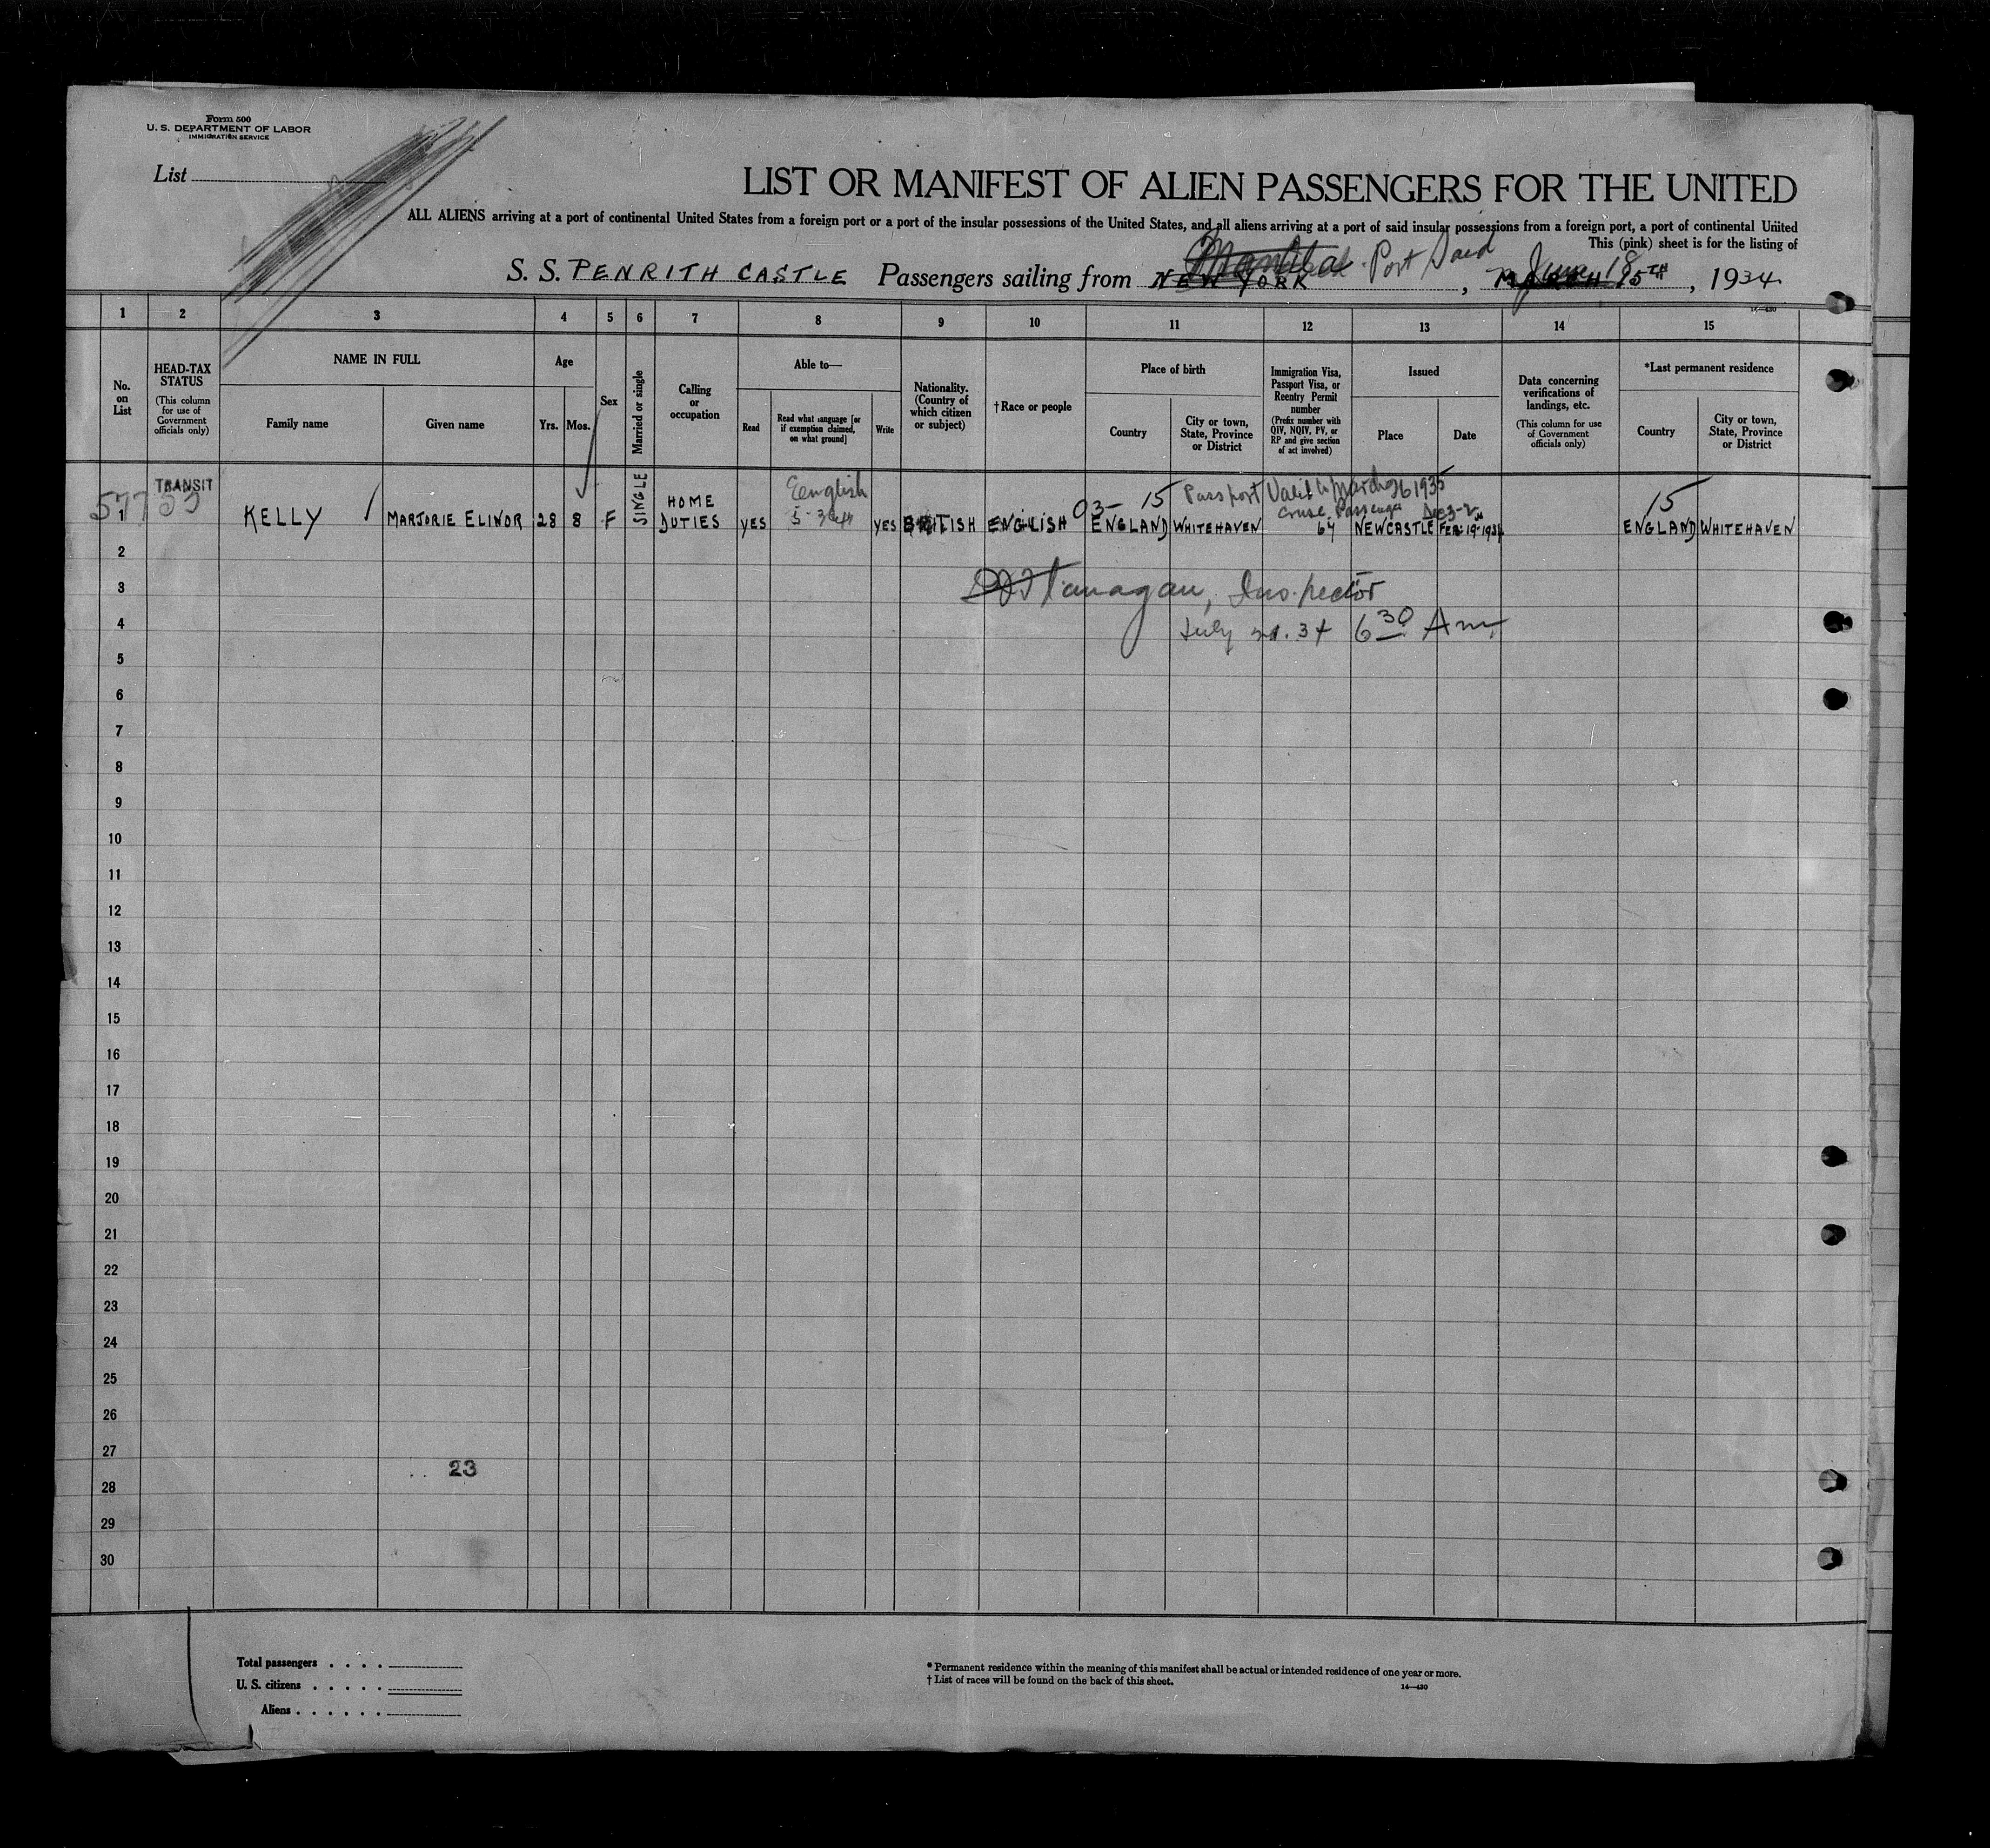 Form 500
U. S. DEPARTMENT OF LABOR
IMMIGRATION SERVICE
List
LIST OR MANIFEST OF ALIEN PASSENGERS FOR THE UNITED
ALL ALIENS arriving at a port of continental United States from a foreign port or a port of the insular possessions of the United States, and all aliens arriving at a port of said insular possessions from a foreign port, a port of continental United
This (pink) sheet is for the listing of
S. S. PENRITH CASTLE Passengers sailing from NEW YORK Port Said, June 18 15TH, 1934
14—430
1 2 3 4 5 6 7 8 9 10 11 12 13 14 15
No. on List
HEAD-TAX STATUS
(This column for use of Government officials only)
NAME IN FULL
Family name
Given name
Age
Yrs.
Mos.
Sex
Married or single
Calling or occupation
Able to—
Read
Read what language [or if exemption claimed, on what ground]
Write
Nationality. (Country of which citizen or subject)
†Race or people
Place of birth
Country
City or town, State, Province or District
Immigration Visa, Passport Visa, or Reentry Permit number
(Prefix number with QIV, NQIV, PV, or RP and give section of act involved)
Issued
Place
Date
Data concerning verifications of landings, etc.
(This column for use of Government officials only)
*Last permanent residence
Country
City or town, State, Province or District
TRANSIT English 03- 15 Passport Valid to March 26 1935 15
Cruise Passenger
1 KELLY MARJORIE ELINOR 28 8 F SINGLE HOME DUTIES YES YES BRITISH ENGLISH ENGLAND WHITEHAVEN 64 NEWCASTLE FEB. 19TH 1934 ENGLAND WHITEHAVEN
2
3 Flanagan, Inspector
4 July 21. 34 6 30 Am
5
6
7
8
9
10
11
12
13
14
15
16
17
18
19
20
21
22
23
24
25
26
27
23
28
29
30
Total passengers . . . .
U. S. citizens . . . . .
Aliens . . . . . .
* Permanent residence within the meaning of this manifest shall be actual or intended residence of one year or more.
† List of races will be found on the back of this sheet.
14—430